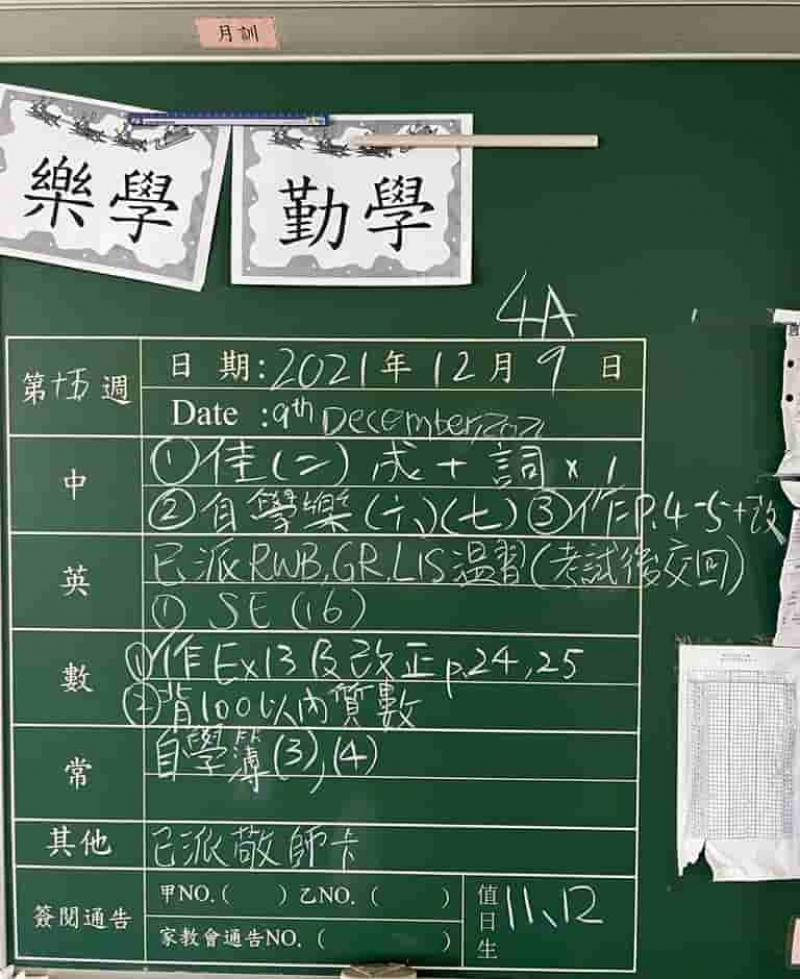 月訓
樂學
勤學
4A
第十五週
日期:2021年12月9日
Date :9th December, 2021
中
①佳(二) 成+詞×1
②自學樂(六)(七)③作P.4-5+改
英
已派RWB,GR,LIS溫習(考試後交回)
① SE (16)
數
①作Ex13及改正p.24,25
②背100以內質數
常
自學簿(3),(4)
其他
已派敬師卡
簽閱通告
甲NO.( ) 乙NO.( )
家教會通告NO.( )
值日生
11、12